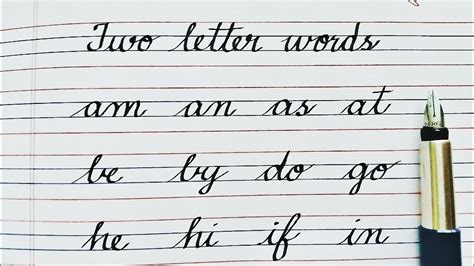 Two letter words
am an as at
be by do go
he hi if in